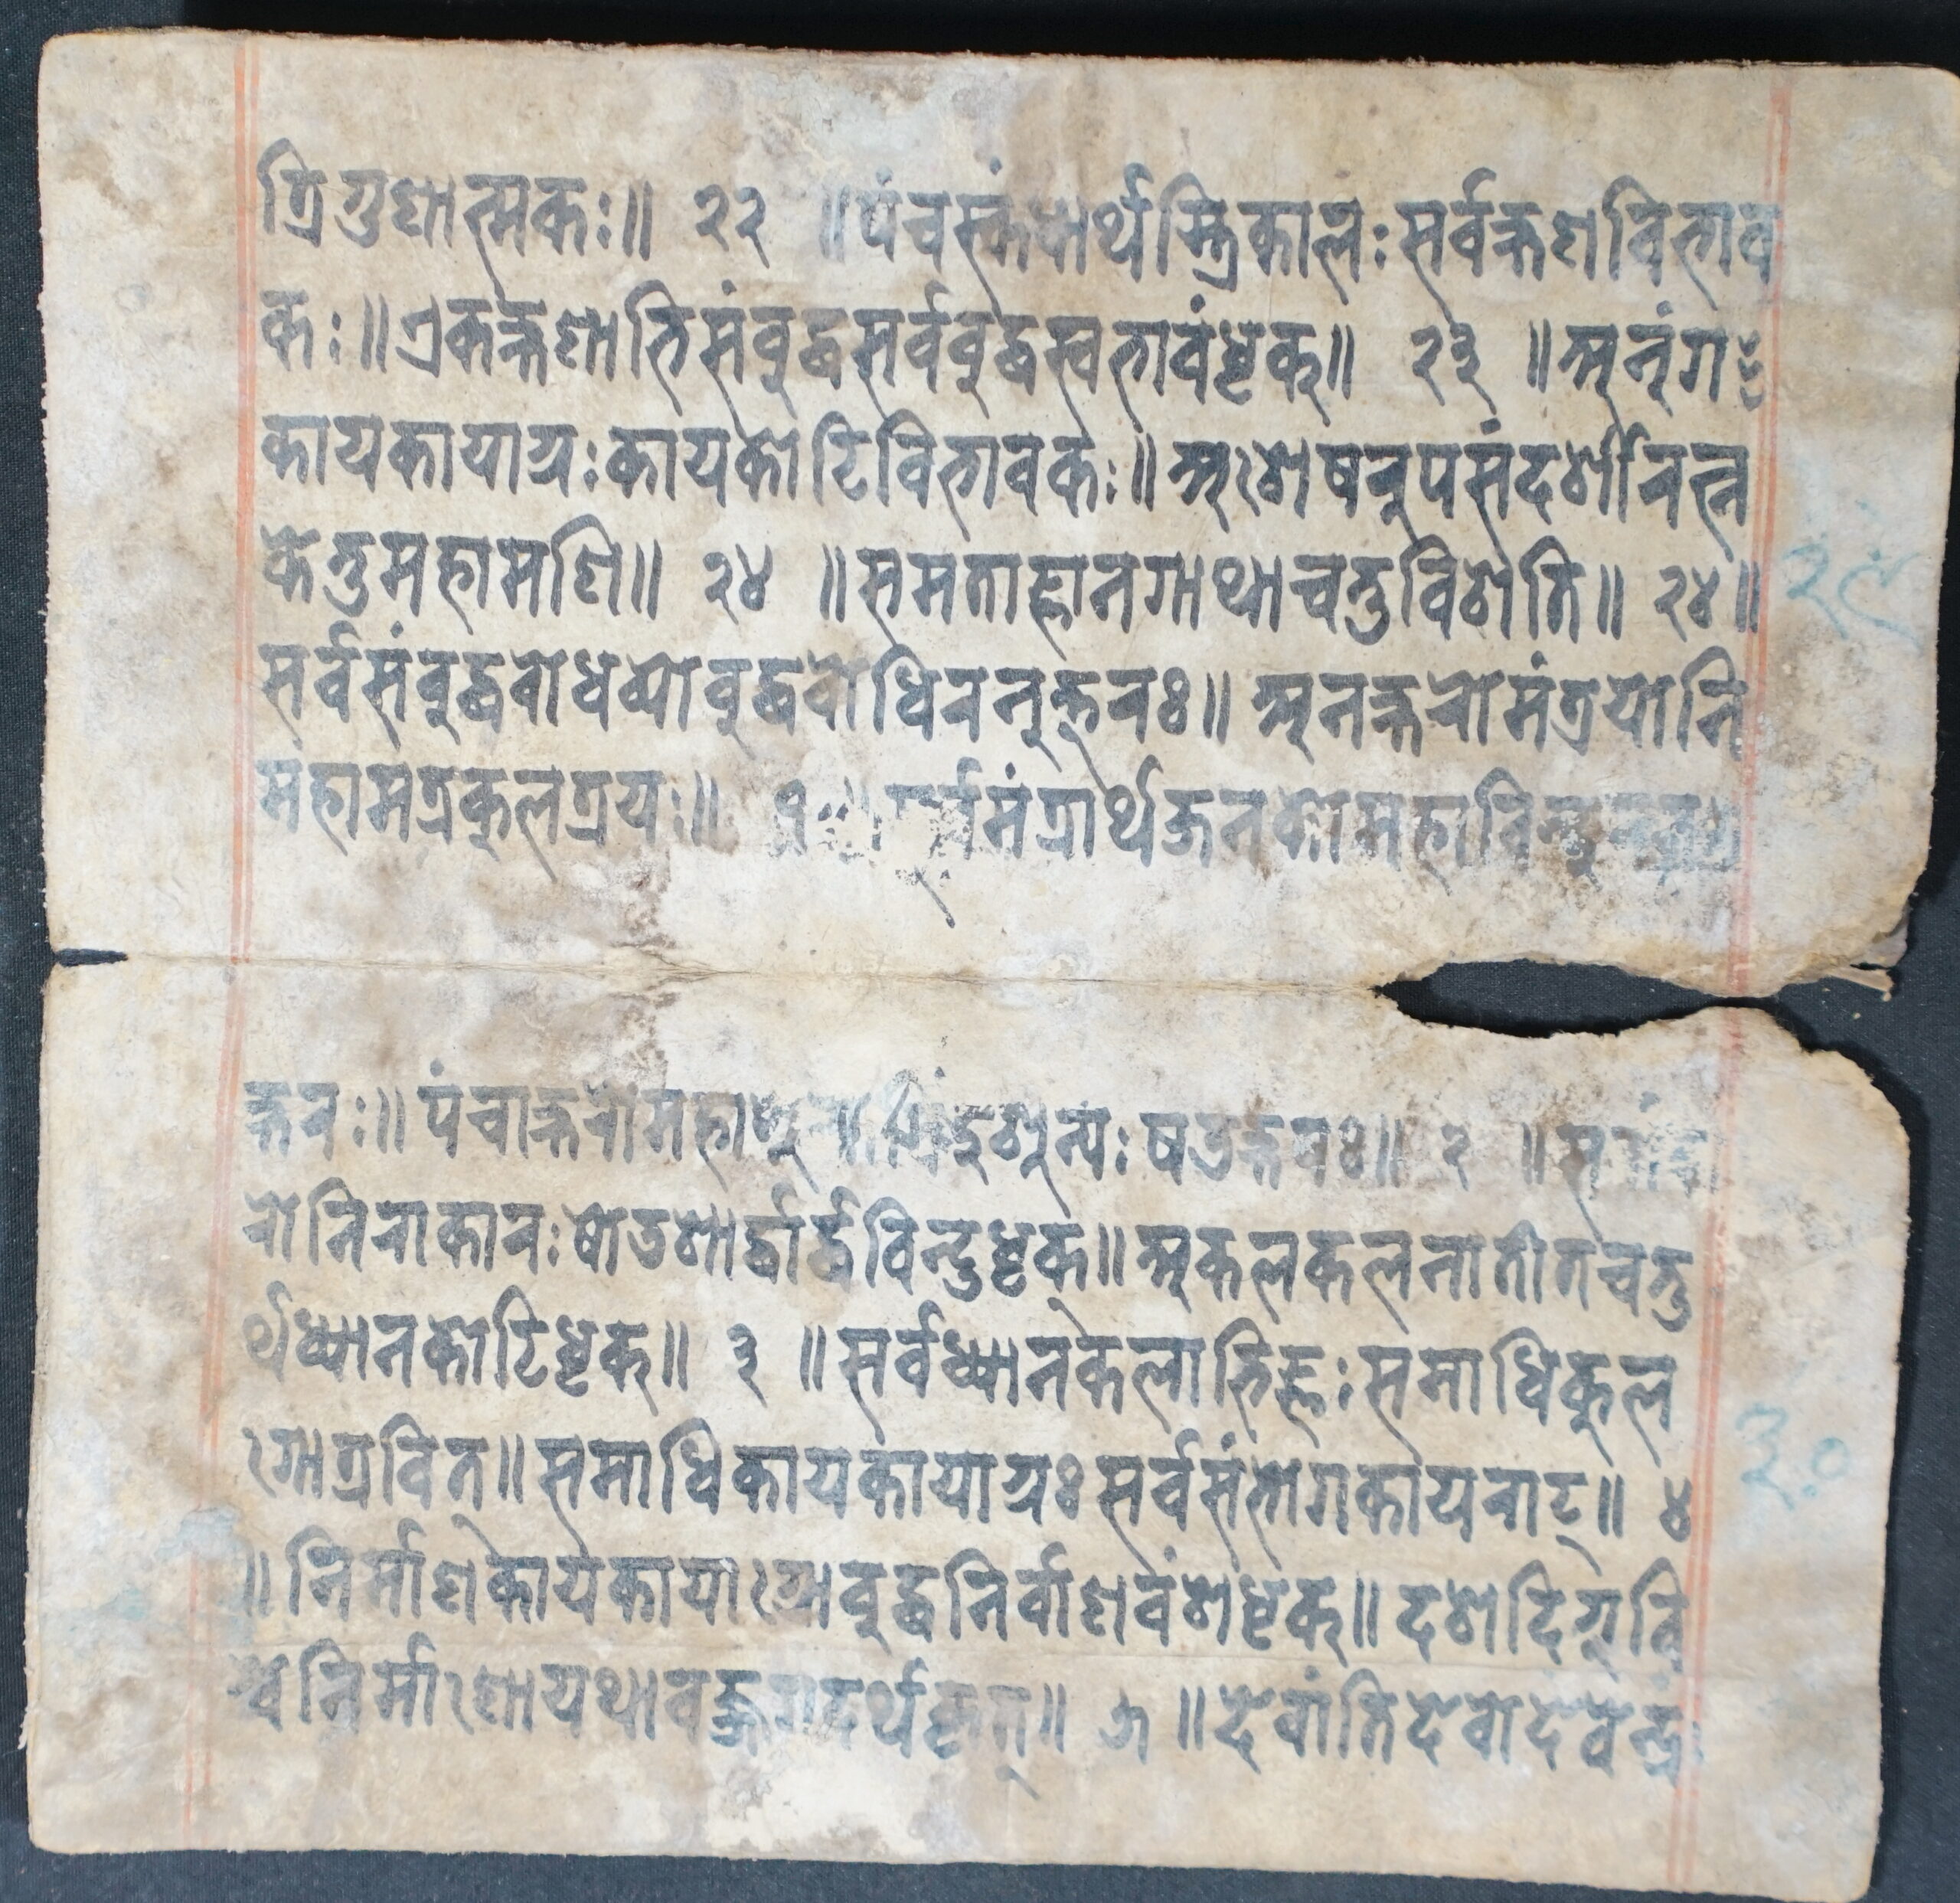 त्रिगुणात्मकः॥ २२ ॥पंचस्कंधार्थस्त्रिकालः सर्वक्षणविभाव
कः॥एकक्षणाभिसंबुद्धसर्वबुद्धस्वभावंधृक्॥ २३ ॥अनंगः
कायकायाग्रः कायकोटिविभावकः॥अशेषरुपसंदर्शीरत्न
केतुमहामणि॥ २४ ॥समताज्ञानगाथाचतुविशति॥ २४॥
सर्वसंबुद्धबोधव्योबुद्धबोधिरनुक्तरः॥ अनक्षरोमंत्रयोनि
महामत्रकुलत्रयः॥ १ ॥सर्वमंत्रार्थजनकोमहाविन्दु
क्षरः॥पंचाक्षरोमहाशून्यो शून्यः षतक्षरः॥ २ ॥
रोनिराकारः षोतशार्द्धार्द्धविन्दुधृक्॥अकलकलनातीतचतु
र्थध्यानकोटिधृक्॥ ३ ॥सर्वध्यानकलाभिज्ञः समाधिकुल
गोत्रवित्॥समाधिकायकायाग्रः सर्वसंभोगकायराट्॥ ४
॥निर्माणकायकायाग्रोबुद्धनिर्वाणवंशधृक्॥दशदिग्वि
श्वनिर्माणोयथावज्जगदर्थकृत्॥ ५ ॥देवांतिदेवोदेवेन्द्रः
२९
३०